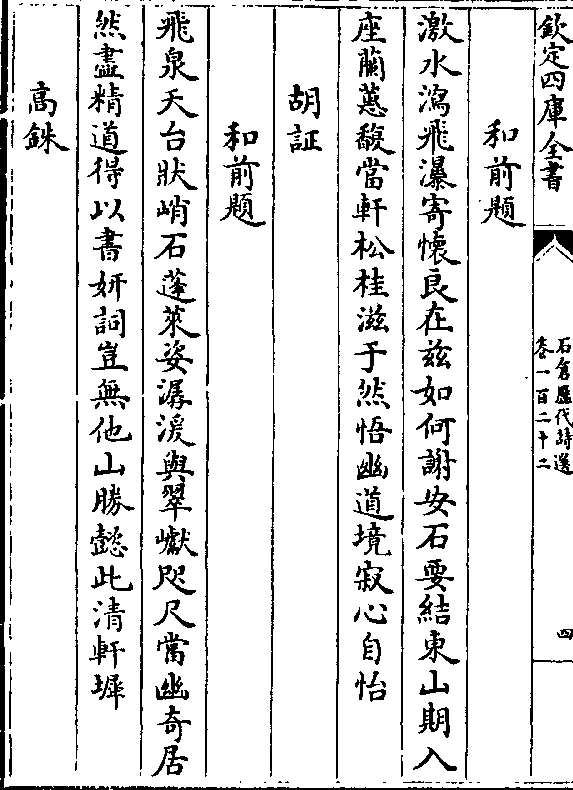 欽定四庫全書
石倉歷代詩選
卷一百二十二
四
和前題
激水瀉飛瀑寄懷良在兹如何謝安石要結東山期入
座蘭蕙馥當軒松桂滋于然悟幽道境寂心自怡
胡証
和前題
飛泉天台狀峭石蓬萊姿潺湲與翠巘咫尺當幽奇居
然盡精道得以書妍詞豈無他山勝懿此清軒墀
高銖